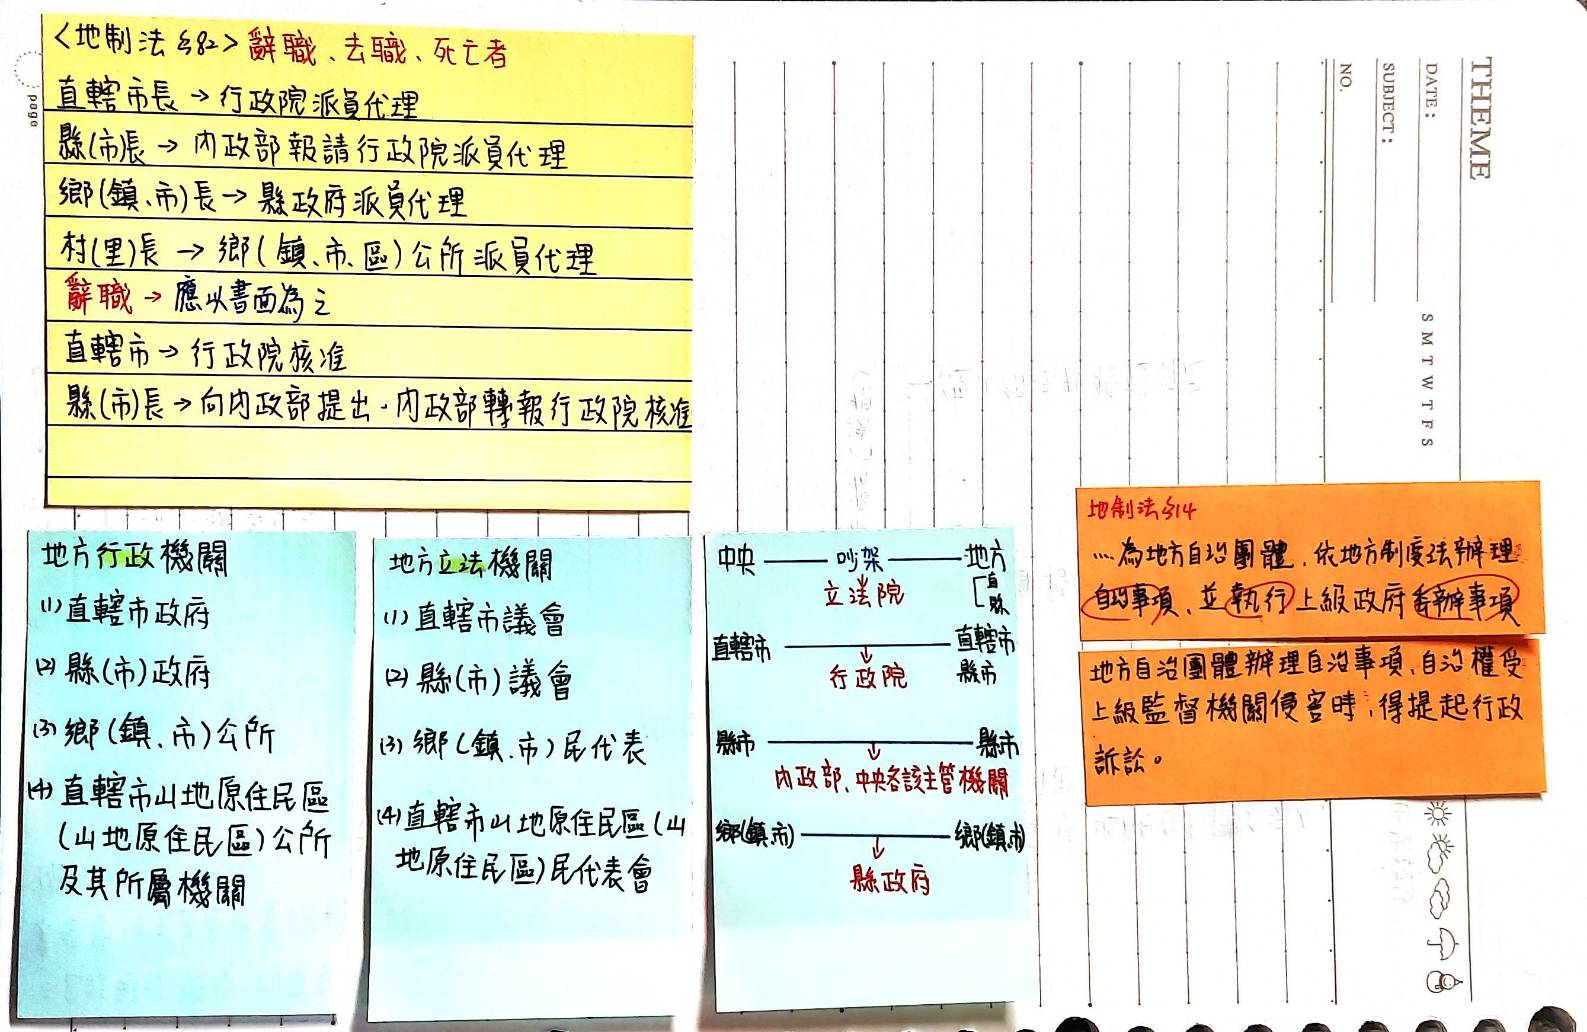 page
<地制法§82> 辭職、去職、死亡者
直轄市長→行政院派員代理
縣(市)長→內政部報請行政院派員代理
鄉(鎮、市)長→縣政府派員代理
村(里)長→鄉(鎮、市、區)公所派員代理
辭職→應以書面為之
直轄市→行政院核准
縣(市)長→向內政部提出,內政部轉報行政院核准
地方行政機關
(1)直轄市政府
(2)縣(市)政府
(3)鄉(鎮、市)公所
(4)直轄市山地原住民區
(山地原住民區)公所
及其所屬機關
地方立法機關
(1)直轄市議會
(2)縣(市)議會
(3)鄉(鎮、市)民代表
(4)直轄市山地原住民區(山
地原住民區)民代表會
中央——吵架——地方
立法院
直
縣
直轄市——直轄市
縣市
行政院
縣市——縣市
內政部、中央各該主管機關
鄉(鎮、市)——鄉(鎮、市)
縣政府
地制法§14
…為地方自治團體,依地方制度法辦理
自治事項、並執行上級政府委辦事項
地方自治團體辦理自治事項、自治權受
上級監督機關侵害時,得提起行政
訴訟。
THEME
DATE:
SUBJECT:
NO.
S M T W T F S